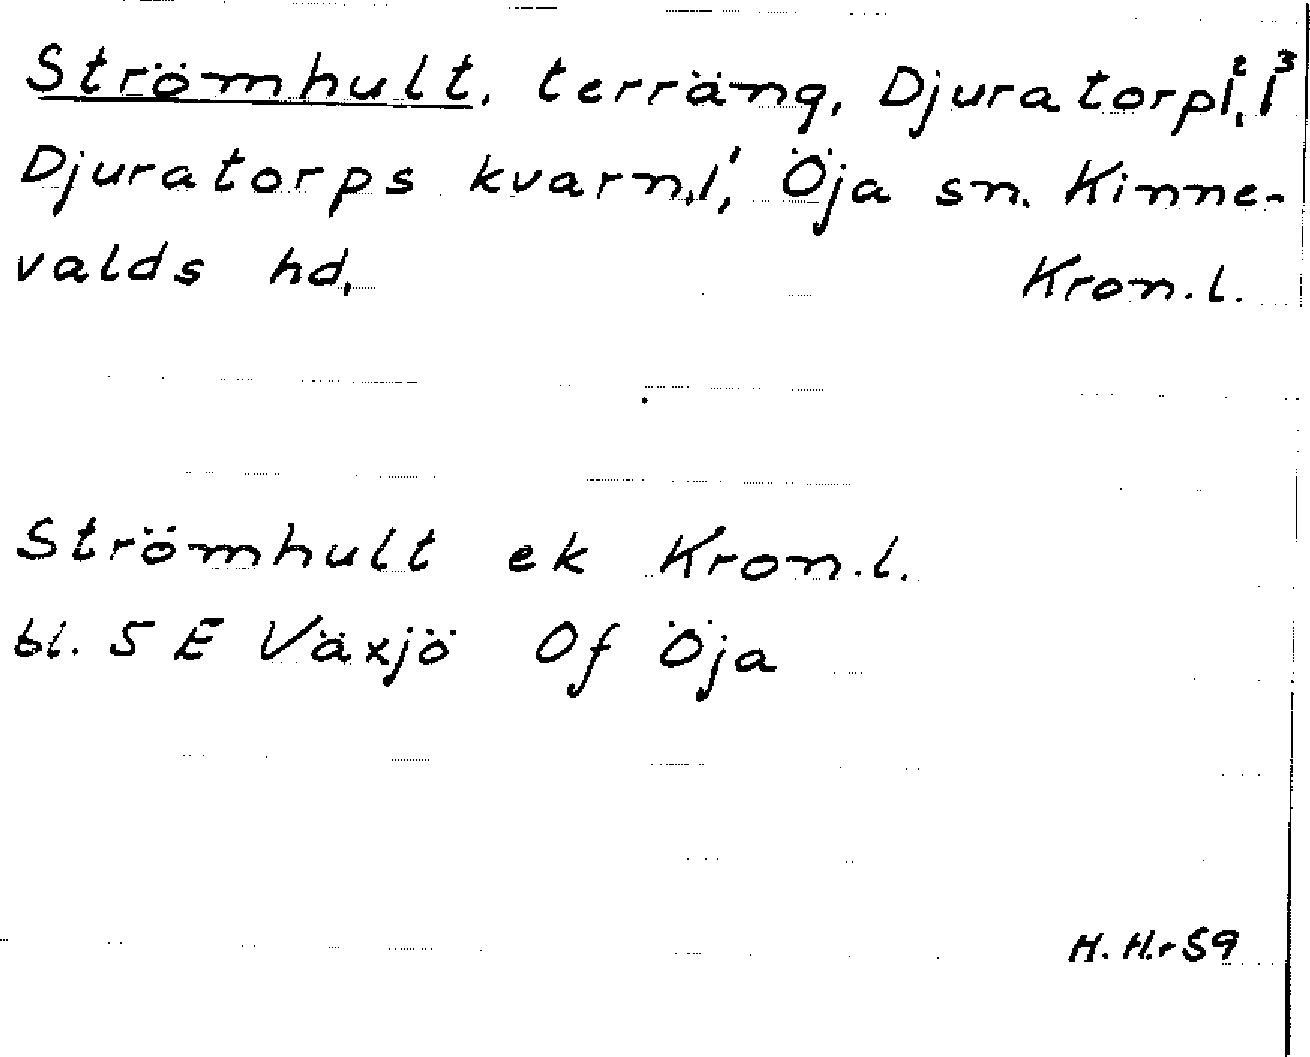 Strömhult, terräng, Djuratorp 1², 1³
Djuratorps kvarn, 1¹, Öja sn. Kinne-
valds hd. Kron. l.
Strömhult ek Kron. l.
bl. 5 E Växjö Of Öja
H. H.r 59